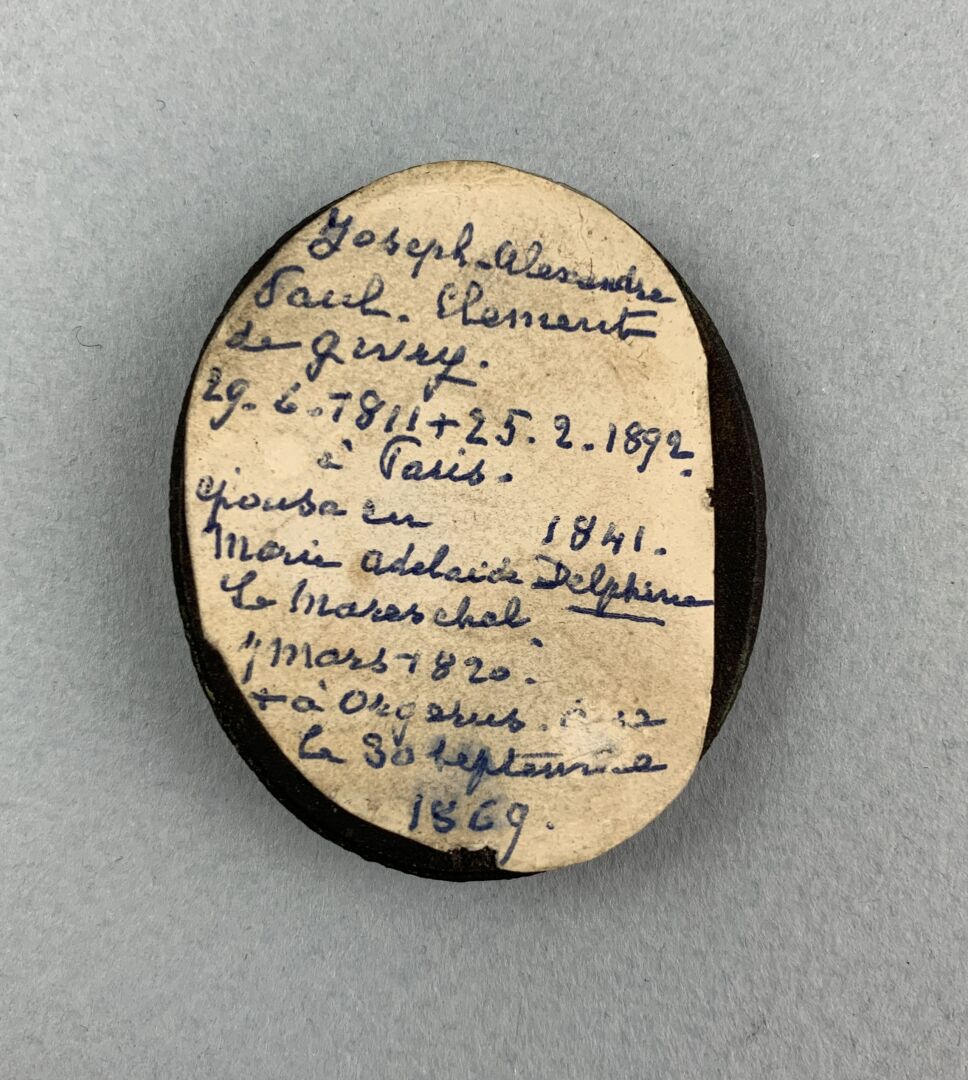 Joseph-Alexandre
Paul. Clement
de Givry.
29. 6. 1811 + 25. 2. 1892.
à Paris.
épousa en 1841.
Marie Adelaide Delphine
Le Mareschal
7 Mars 1820.
+ à Orgerus.
le 30 septembre
1869.